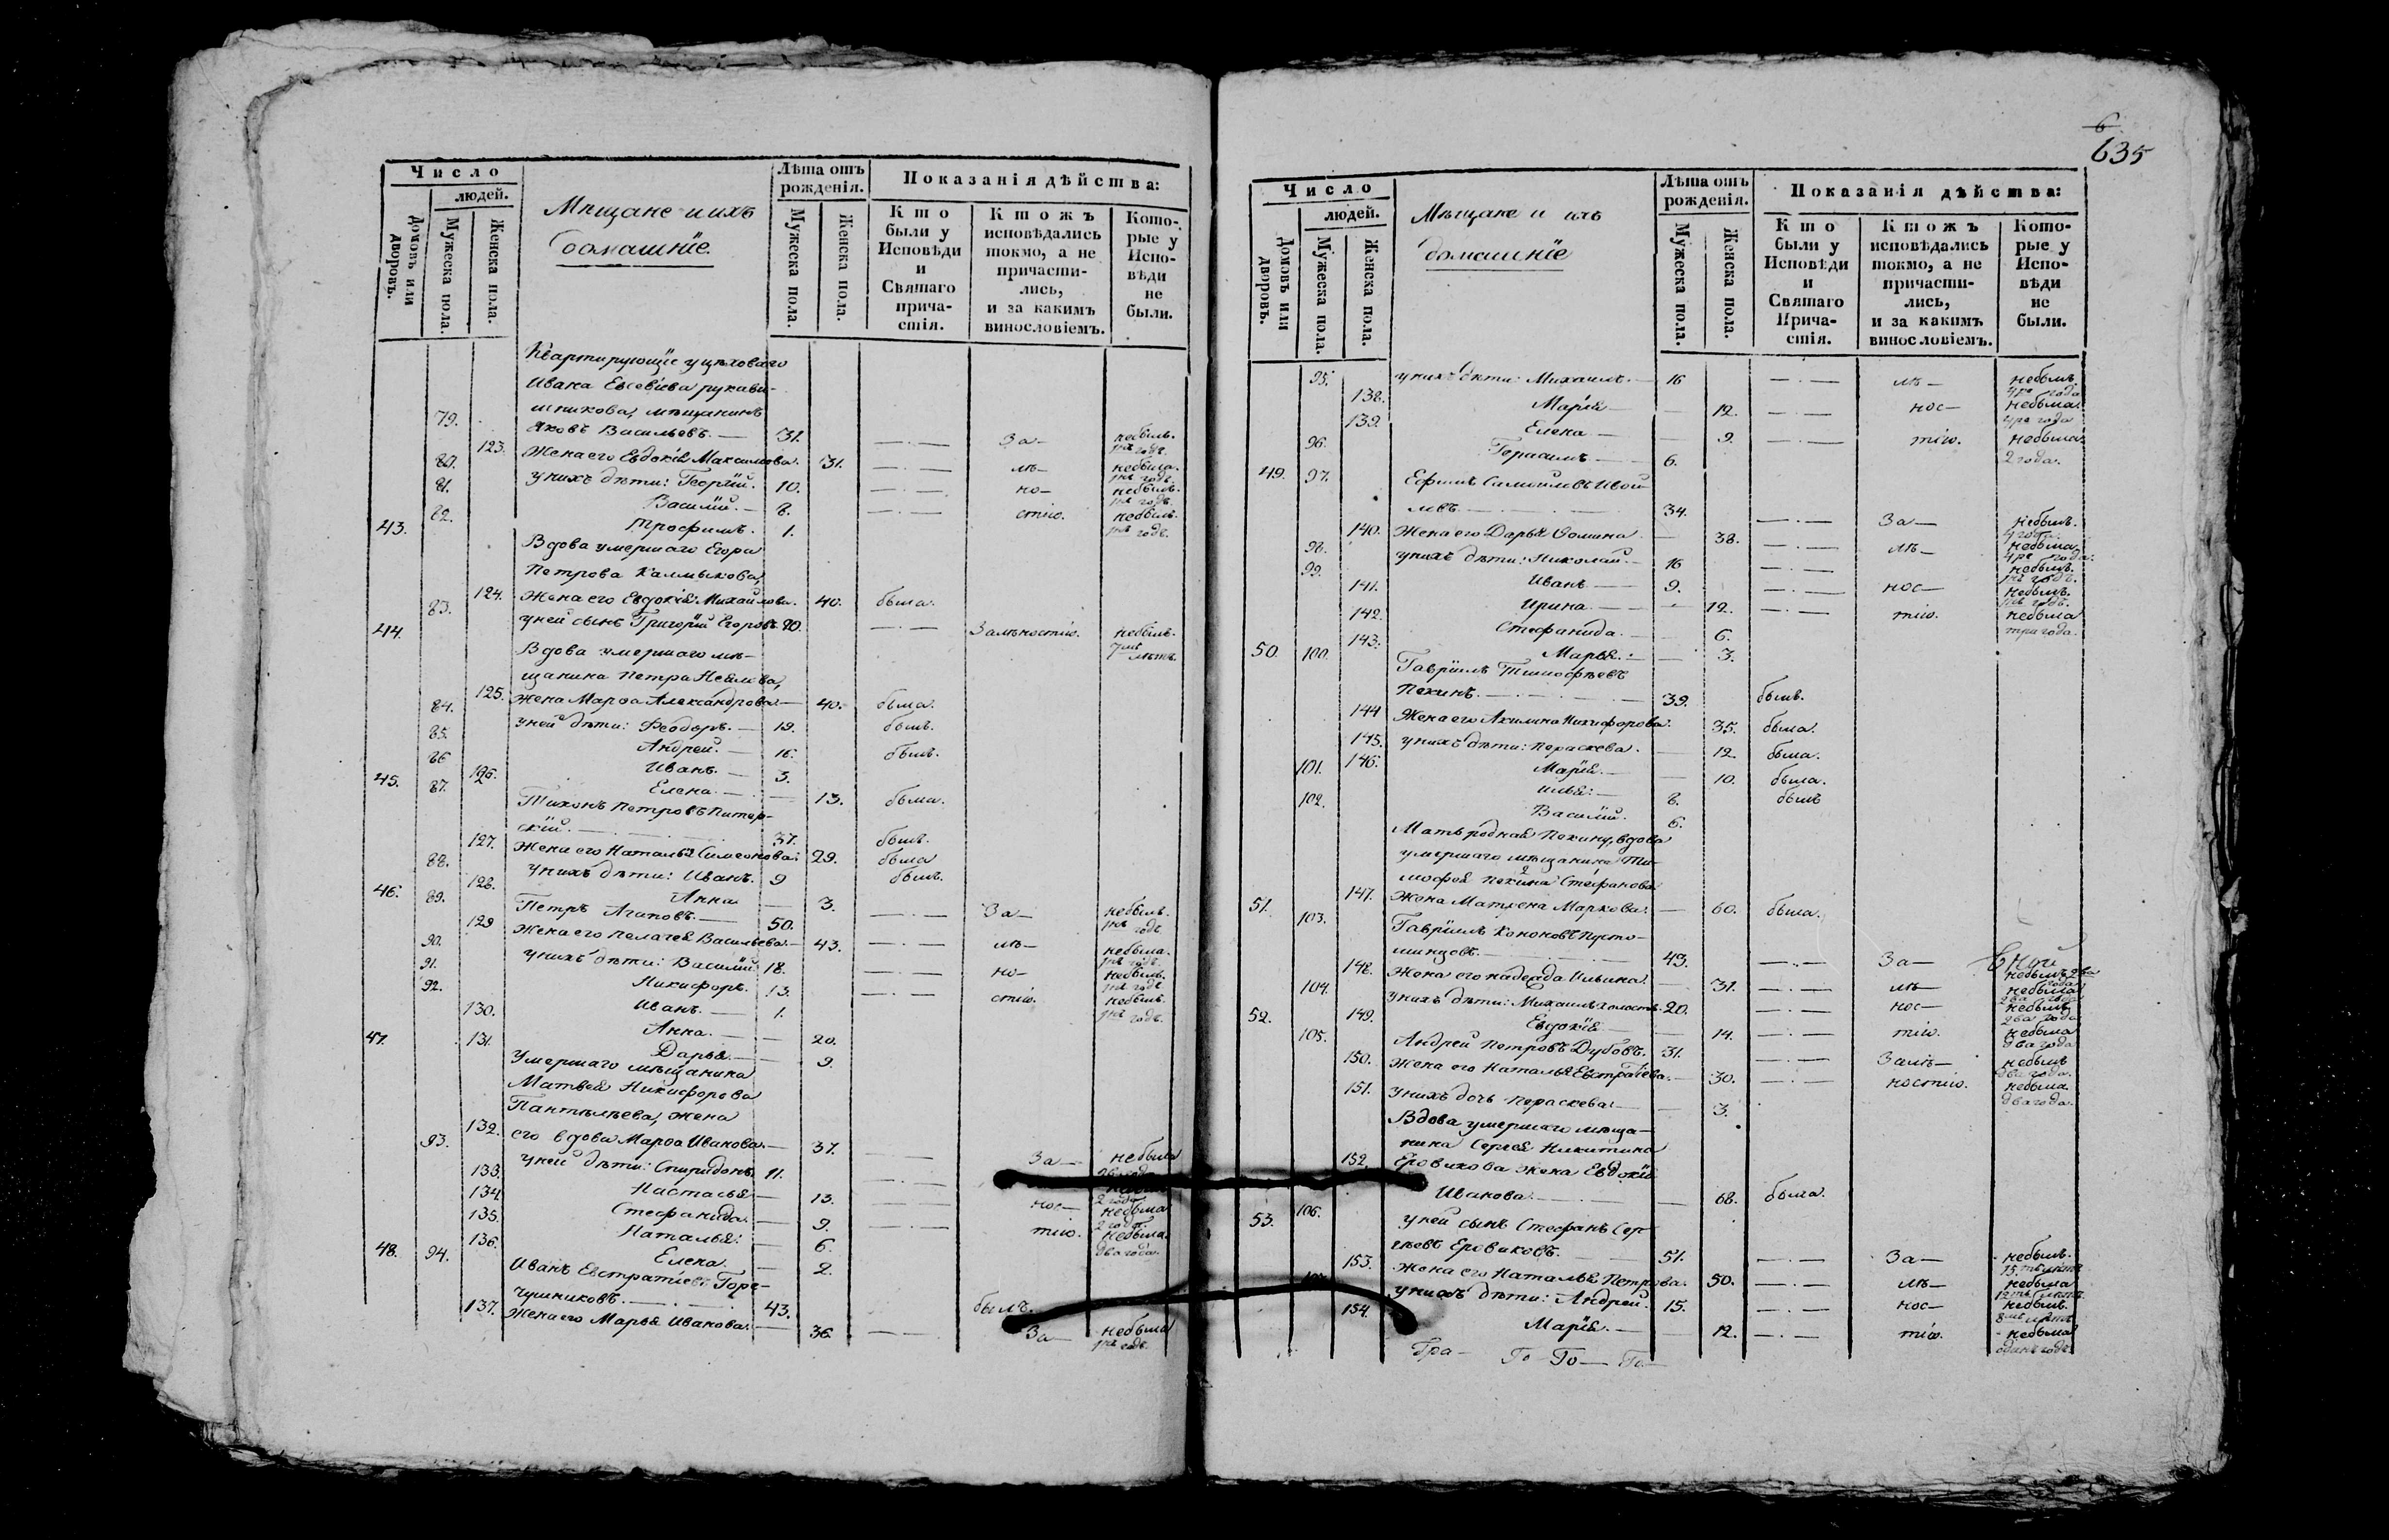 Число
людей.
Домовъ или дворовъ.
Мужеска пола.
Женска пола.
Мѣщане и ихъ
домашнїе.
Лѣта отъ
рожденія.
Мужеска пола.
Женска пола.
Показанія дѣйства:
Кто
были у
Исповѣди
и
Святаго
прича-
стія.
Ктожъ
исповѣдались
токмо, а не
причасти-
лись,
и за какимъ
винословіемъ.
Кото-
рые у
Испо-
вѣди
не
были.
Квартирующїе у цѣховаго
Ивана Евсевїева рукави-
шникова, мѣщанинъ
79. Яковъ Васильевъ. — 31. — . — За— небылъ. 1нъ годъ.
123. Жена его Евдокїя Максимова. 31. — . — лѣ— небыла. 1нъ годъ.
80. У нихъ дѣти: Георгїй. 10. — . — но— небылъ. 1нъ годъ.
81. Василїй. — 8. — . — стїю. небылъ. 1нъ годъ.
82. Трофимъ. 1.
43. Вдова умершаго Егора
Петрова Калмыкова,
124. Жена его Евдокїя Михайлова. 40. была.
83. У ней сынъ Григорїй Егоровъ 20. — . — Залѣностїю. небылъ. 7мь лѣтъ.
44. Вдова умершаго мѣ-
щанина Петра
125. Жена Марѳа Александрова. — 40. была.
84. У ней дѣти: Феодоръ. — 19. былъ.
85. Андрей. — 16. былъ.
86 Иванъ. — 3.
126. Елена. — 13. была.
45. 87. Тихонъ Петровъ Питер-
скїй. — 37. былъ.
127. Жена его Наталья Симеонова. 29. была
88. У нихъ дѣти: Иванъ. 9 былъ.
128. Анна — 3.
46. 89. Петръ Агаповъ. — 50. — . — За— небылъ. 1нъ годъ
129 Жена его Пелагея Васильева. — 43. — . — лѣ— небыла. 1нъ годъ.
90. У нихъ дѣти: Василїй 18. — . — но— небылъ. 1нъ годъ
91. Никифоръ. 13. — . — стїю. небылъ. 1нъ годъ.
92. Иванъ. — 1.
130. Анна. — 20.
131. Дарья. — 9.
47. Умершаго мѣщанина
Матвея Никифорова
Пантѣлѣева, жена
132. его вдова Марѳа Иванова. — 37. — За— небыла
93. У ней дѣти: Спиридонъ 11. — . —
133. Настасья — 13. — . — нос— 2 года. небыла
134. Стефанида. — 9. — . — тїю. 2 года. небыла. два года.
135. Наталья: — 6.
136. Елена. — 2.
48. 94. Иванъ Евстратїевъ Горе-
чушниковъ. — . — 43. былъ.
137. Жена его Марья Иванова. — 36. — За— небыла 1нъ годъ.
6
635
Число
людей.
Домовъ или дворовъ.
Мужеска пола.
Женска пола.
Мѣщане и ихъ
домашнїе
Лѣта отъ
рожденія.
Мужеска пола.
Женска пола.
Показанія дѣйства:
Кто
были у
Исповѣди
и
Святаго
Прича-
стія.
Ктожъ
исповѣдались
токмо, а не
причасти-
лись,
и за какимъ
винословіемъ.
Кото-
рые у
Испо-
вѣди
не
были.
95. у нихъ дѣти: Михаилъ. — 16 — . — лѣ— небылъ 4ре года
138. Марїя — 12. — . — нос— небыла 4ре года
139. Елена — 9. — . — тїю. небыла 2 года.
96. Герасимъ — 6.
49. 97. Ефимъ Самоиловъ
34. — . — За— небылъ. 4 года.
140. Жена его Дарья Ѳомина — 38. — . — лѣ— небыла 4ре года.
98. у нихъ дѣти: Николай. — 16 — . — небылъ. 1нъ годъ.
99. Иванъ — 9. — . — нос— небылъ. 1нъ годъ.
141. Ирина. — 12. — . — тїю. небыла три года.
142. Стефанида. — 6.
143. Марья. — 3.
50. 100. Гаврїилъ Тимофѣевъ
Пехинъ. — . — . — 39. былъ.
144 Жена его Акилина Никифорова. 35. была.
145. у нихъ дѣти: Пераскева. — 12. была.
146. Марїя. — 10. была.
101. Илья: — 8. былъ
102. Василїй. 6.
Мать родная Пехину, вдова
умершаго мѣщанина Ти-
мофея Пехина Стефанова
147. Жена Матрена Маркова. — 60. была.
51. 103. Гаврїилъ Кононовъ Пусто-
49. — . — За— небылъ два года
148. Жена его Надежда Ильина. — 31. — . — лѣ— небыла два года
104. У нихъ дѣти: Михаилъ холостъ. 20. — . — нос— небылъ два года
149. Евдокїя — 14. — . — тїю. небыла два года
52. 105. Андрей Петровъ Дубовъ. 31. — . — Залѣ— небылъ два года.
150. Жена его Наталья Евстратїева. — 30. — . — ностїю. небыла. два года.
151. У нихъ дочь Пераскева: — 3.
Вдова умершаго мѣща-
нина Сергея Никитина
152. Еровикова жена Евдокїя
Иванова. — 68. была.
53. 106. У ней сынъ Стефанъ Сер-
гѣевъ Еровиковъ. — 51. — . — За— небылъ. 15ть лѣтъ
153. Жена его Наталья Петрова. 50. — . — лѣ— небыла 12ть лѣтъ.
У нихъ дѣти: Андрей. 15. — . — нос— небылъ. 8мь лѣтъ
154. Марїя. — 12. — . — тїю. небыла одинъ годъ.